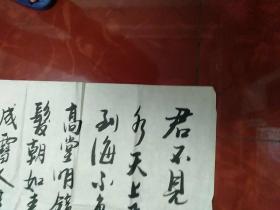 君不見
水天上
到海不
高堂明鏡
髮朝如
成雪人